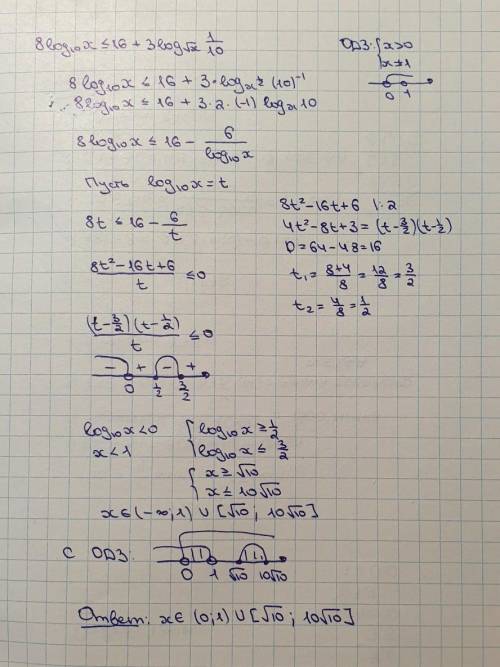 8log₁₀x ≤ 16 + 3log_√x 1/10
ОДЗ: { x>0
x≠1
0 1
8log₁₀x ≤ 16 + 3·log_x^½ (10)⁻¹
8log₁₀x ≤ 16 + 3·2·(-1) log_x 10
8log₁₀x ≤ 16 - 6/log₁₀x
Пусть log₁₀x = t
8t ≤ 16 - 6/t
(8t²-16t+6)/t ≤ 0
((t-3/2)(t-1/2))/t ≤ 0
- + - +
0 1/2 3/2
8t²-16t+6 |:2
4t²-8t+3 = (t-3/2)(t-1/2)
D = 64-48 = 16
t₁ = (8+4)/8 = 12/8 = 3/2
t₂ = 4/8 = 1/2
log₁₀x < 0
x < 1
{ log₁₀x ≥ 1/2
log₁₀x ≤ 3/2
{ x ≥ √10
x ≤ 10√10
x ∈ (-∞; 1) ∪ [√10 ; 10√10]
С ОДЗ:
0 1 √10 10√10
Ответ: x ∈ (0;1) ∪ [√10 ; 10√10]